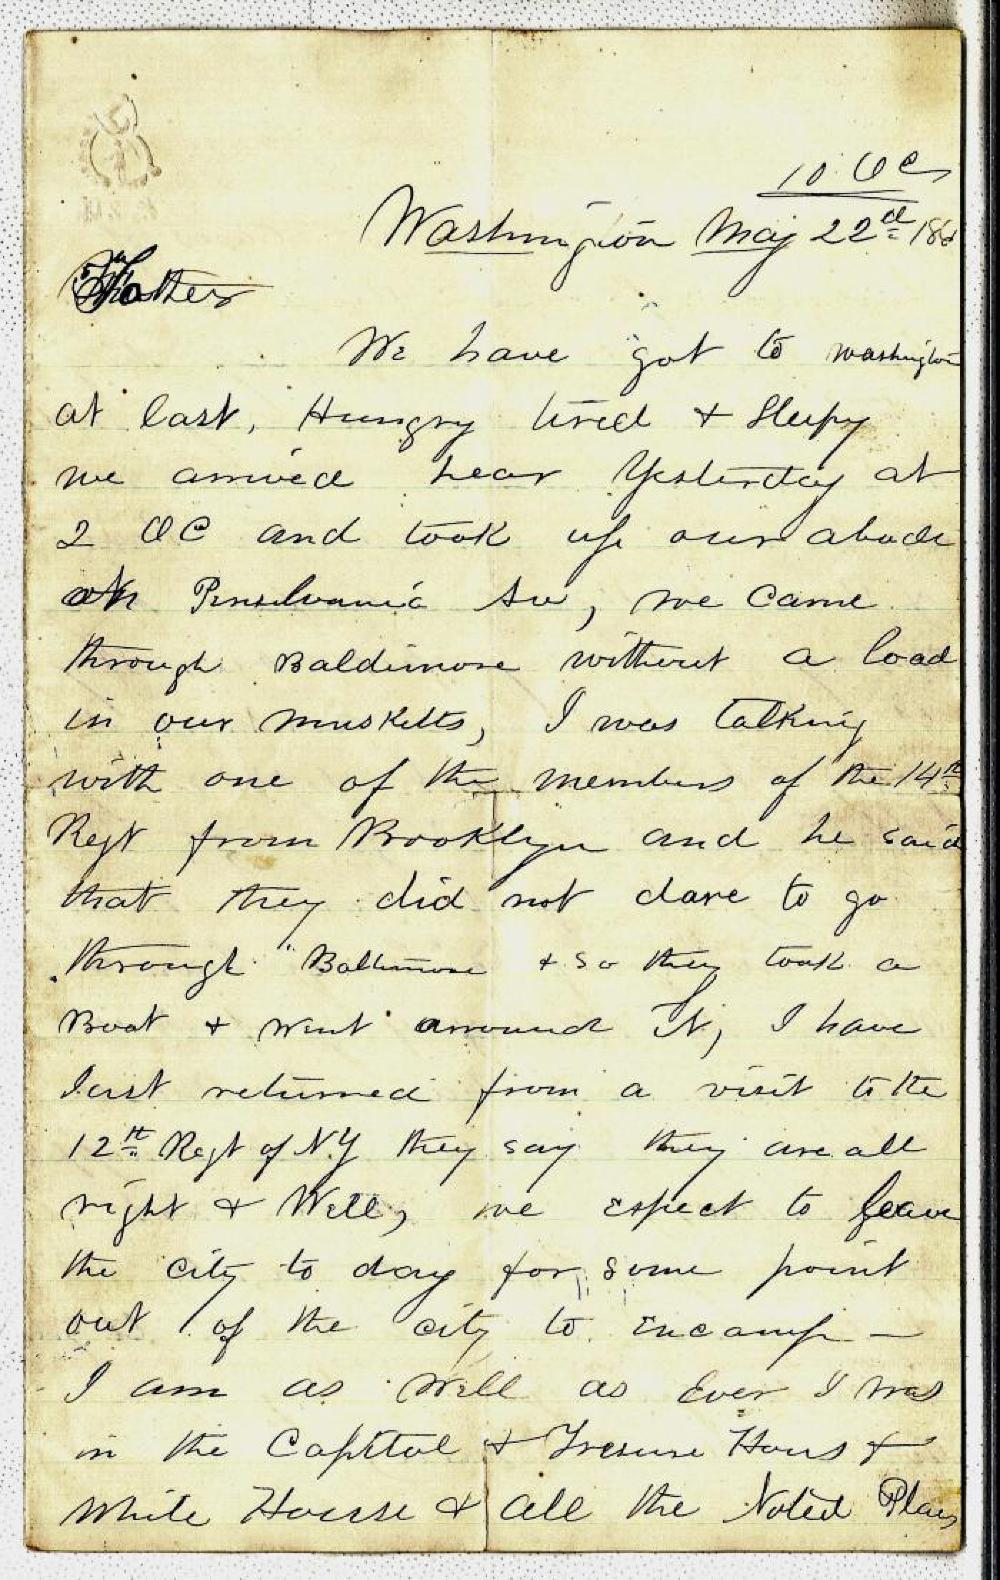 10 OC
Washington May 22d 186
Father
We have got to washington
at last, Hungry tired & Sleepy
we arrived hear Yesterday at
2 OC and took up our abode
on Pensilvania Av, we came
through Baldimore without a load
in our musketts, I was talking
with one of the members of the 14th
Regt from Brooklyn and he said
that they did not dare to go
through Baltimore & so they took a
Boat & went arround It, I have
Just returned from a visit to the
12th Regt of N.Y they say they are all
right & Well, we expect to leave
the city to day for some point
out of the city to encamp —
I am as Well as Ever I was
in the Capitol & Tresure Hous &
White Housse & all the Noted Places